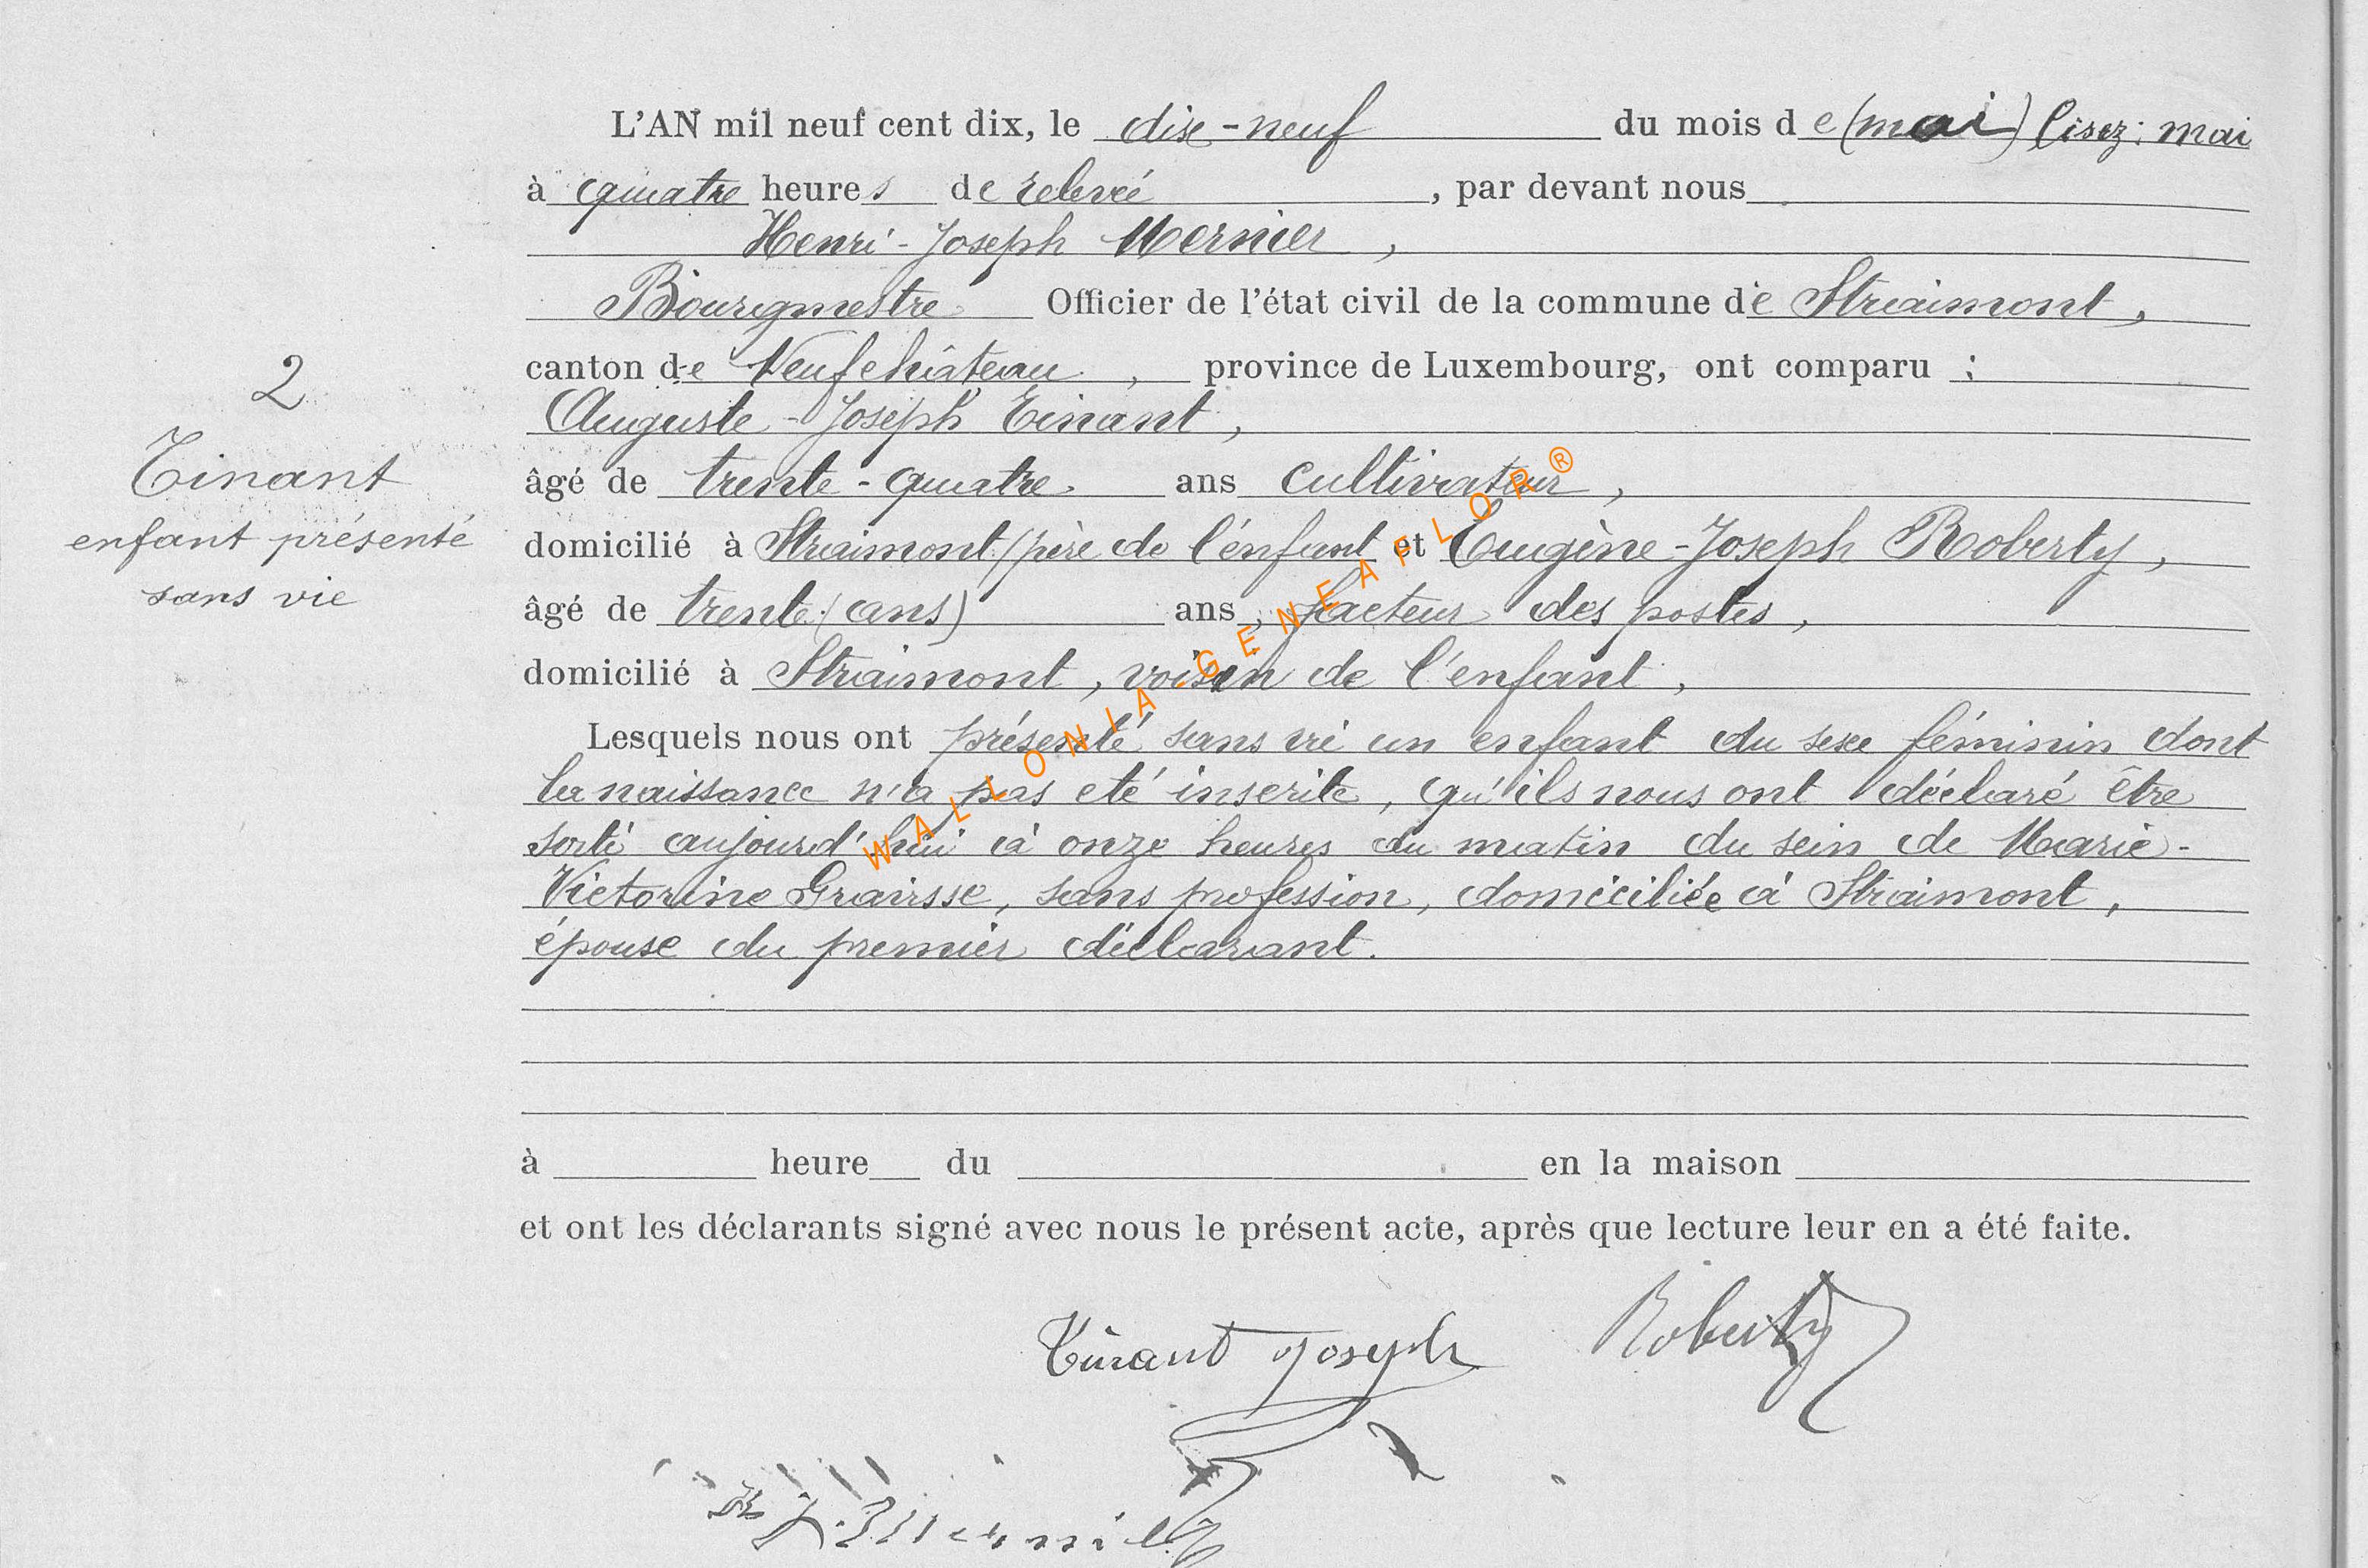 L'AN mil neuf cent dix, le dix-neuf du mois de (mai) lisez: mai
à quatre heures de relevée, par devant nous
Henri-Joseph Mernier,
Bourgmestre Officier de l'état civil de la commune de Straimont,
canton de Neufchâteau, province de Luxembourg, ont comparu :
Auguste-Joseph Tinant,
âgé de trente-quatre ans cultivateur,
domicilié à Straimont, père de l'enfant et Eugène-Joseph Roberty,
âgé de trente (ans) ans, facteur des postes,
domicilié à Straimont, voisin de l'enfant,
Lesquels nous ont présenté sans vie un enfant du sexe féminin dont
la naissance n'a pas été inscrite, qu'ils nous ont déclaré être
sorti aujourd'hui à onze heures du matin du sein de Marie-
Victorine Graisse, sans profession, domiciliée à Straimont,
épouse du premier déclarant.
à heure du en la maison
et ont les déclarants signé avec nous le présent acte, après que lecture leur en a été faite.
2
Tinant
enfant présenté
sans vie
Tinant Joseph Roberty
WALLONIA.GENEAFLOR®